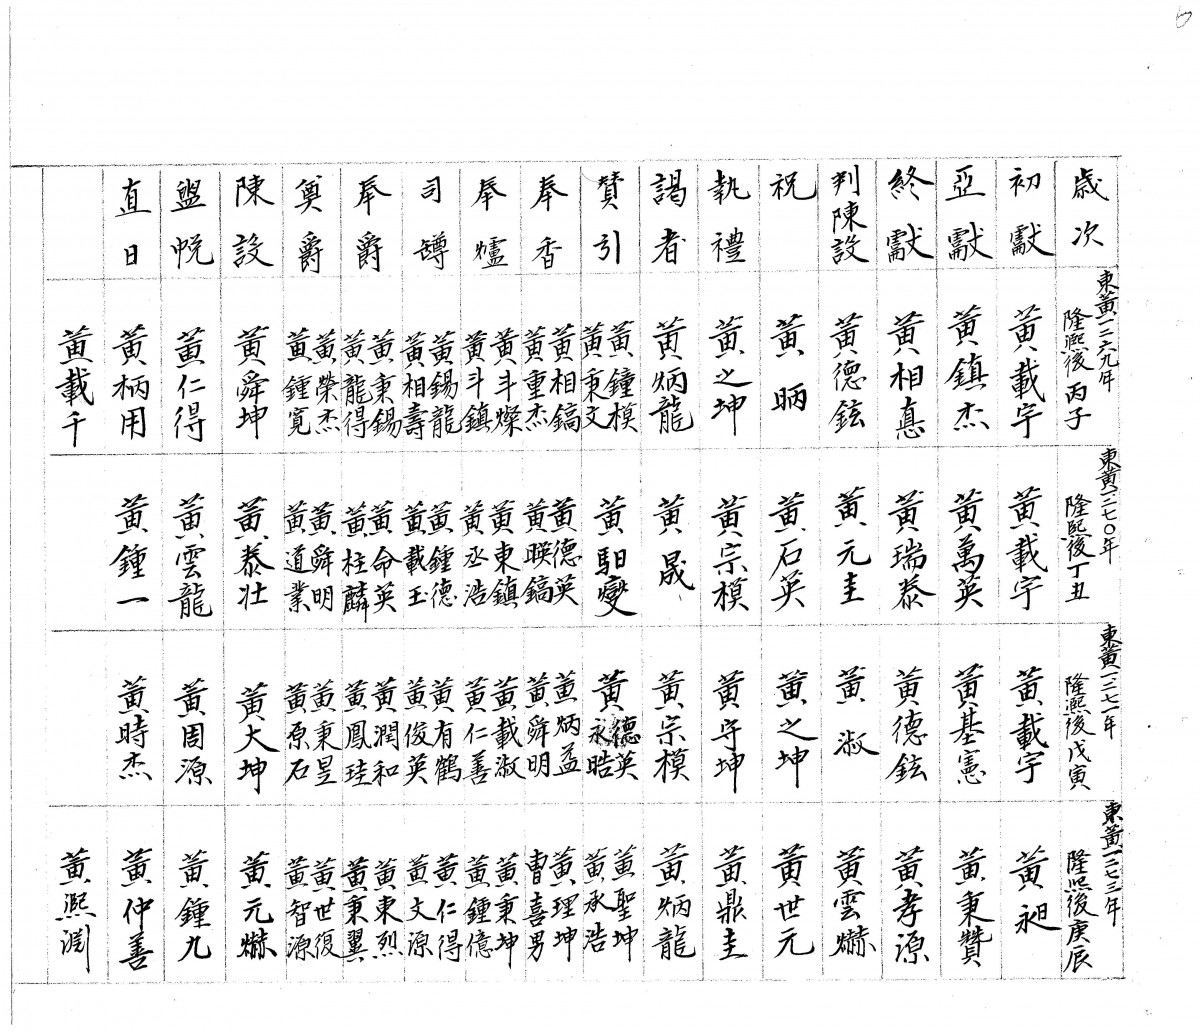 歲次
初獻
亞獻
終獻
判陳設
祝
執禮
謁者
贊引
奉香
奉爐
司罇
奉爵
奠爵
陳設
盥帨
直日
東黃一三六九年
隆熙後丙子
黃載宇
黃鎮杰
黃相悳
黃德鉉
黃昞
黃之坤
黃炳龍
黃鐘模
黃秉文
黃相鎬
黃重杰
黃斗燦
黃斗鎮
黃錫龍
黃相壽
黃秉錫
黃龍得
黃榮杰
黃鍾寬
黃舜坤
黃仁得
黃柄用
黃載千
東黃一三七〇年
隆熙後丁丑
黃載宇
黃萬英
黃瑞泰
黃元圭
黃石英
黃宗模
黃晟
黃馹燮
黃德英
黃暎鎬
黃東鎮
黃丞浩
黃鍾德
黃載玉
黃命英
黃柱麟
黃舜明
黃道業
黃泰壯
黃雲龍
黃鍾一
東黃一三七一年
隆熙後戊寅
黃載宇
黃基憲
黃德鉉
黃淑
黃之坤
黃守坤
黃宗模
黃德英
永晧
黃炳益
黃舜明
黃載淑
黃仁善
黃有鶴
黃俊英
黃潤和
黃鳳珪
黃秉昱
黃原石
黃大坤
黃周源
黃時杰
東黃一三七三年
隆熙後庚辰
黃昶
黃秉贊
黃孝源
黃雲爀
黃世元
黃鼎圭
黃炳龍
黃聖坤
黃承浩
黃理坤
曺喜男
黃秉坤
黃鍾億
黃仁得
黃文源
黃東烈
黃秉翼
黃世復
黃智源
黃元爀
黃鍾九
黃仲善
黃熙淵